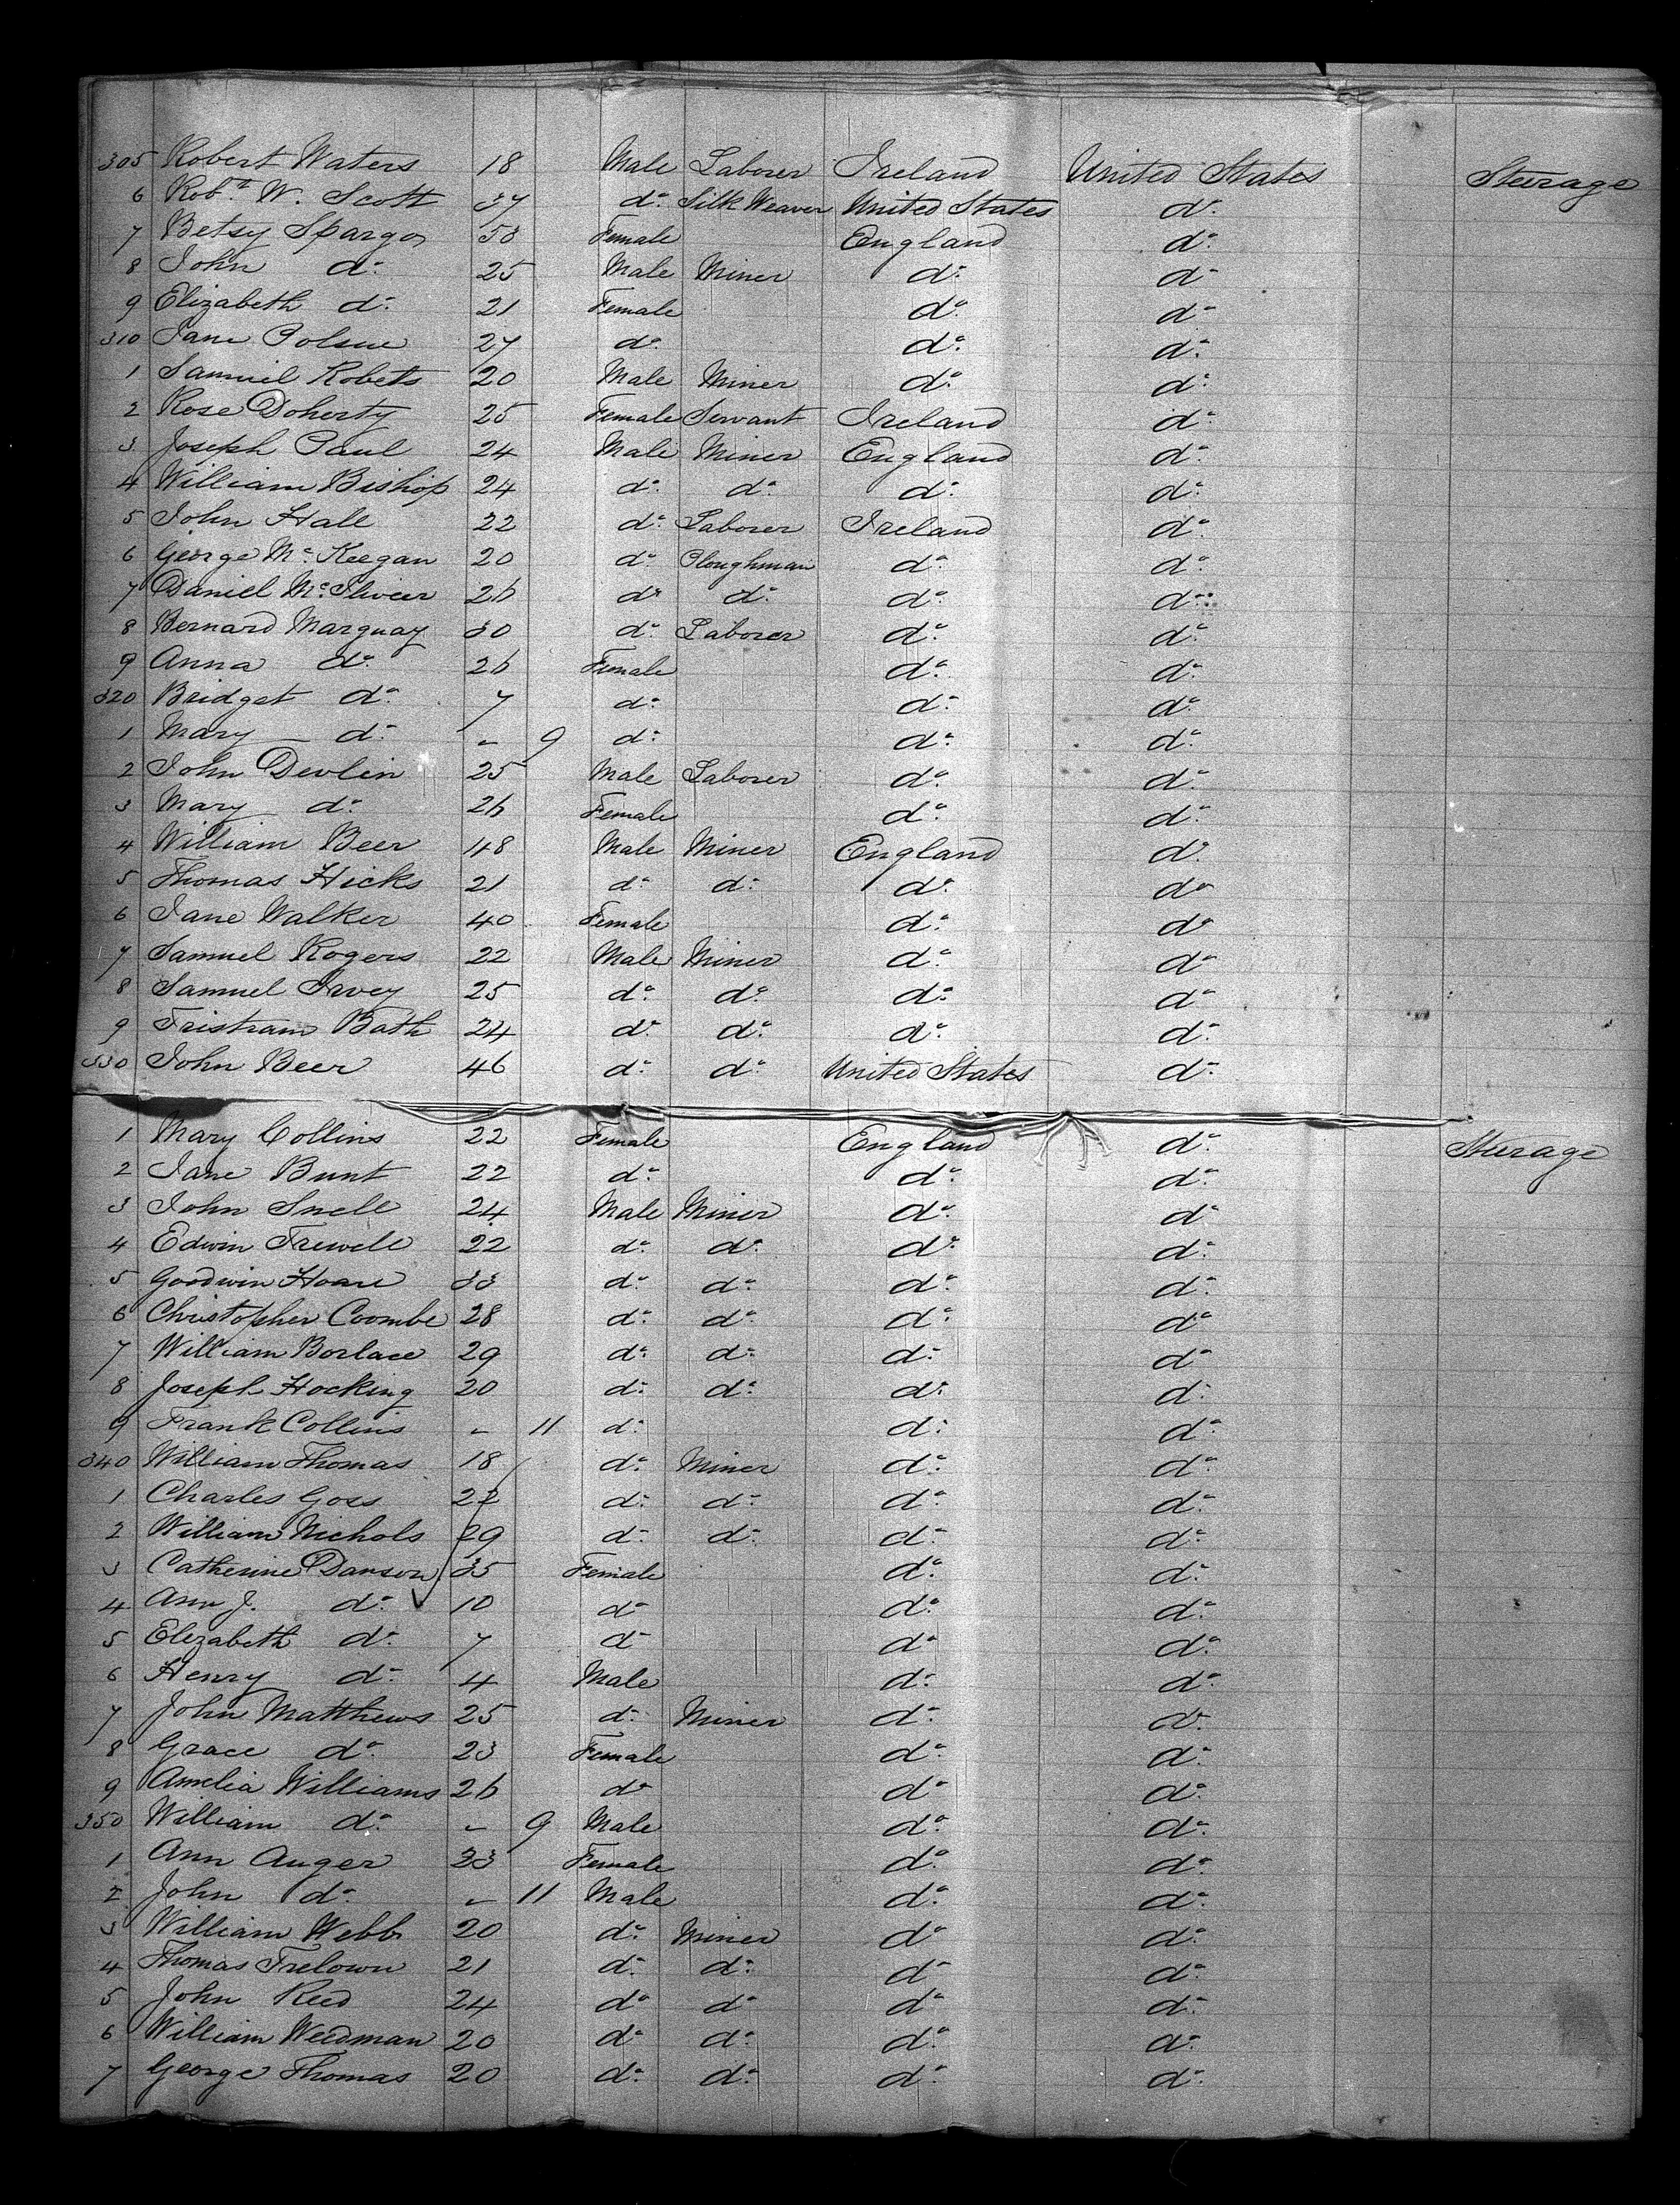 305 Robert Waters 18 Male Laborer Ireland United States Steerage
6 Robt. W. Scott 37 do. Silk Weaver United States do.
7 Betsy Spargo 53 Female England do.
8 John do. 25 Male Miner do. do.
9 Elizabeth do. 21 Female do. do.
310 Jane Polsue 27 do. do. do.
1 Samuel Robets 20 Male Miner do. do.
2 Rose Doherty 25 Female Servant Ireland do.
3 Joseph Paul 24 Male Miner England do.
4 William Bishop 24 do. do. do. do.
5 John Hall 22 do. Laborer Ireland do.
6 George Mc. Keegan 20 do. Ploughman do. do.
7 Daniel Mc. 26 do. do. do. do.
8 Bernard Marguay 30 do. Laborer do. do.
9 Anna do. 26 Female do. do.
320 Bridget do. 7 do. do. do.
1 Mary do. - 9 do. do. do.
2 John Devlin 25 Male Laborer do. do.
3 Mary do. 26 Female do. do.
4 William Beer 48 Male Miner England do.
5 Thomas Hicks 21 do. do. do. do.
6 Jane Walker 40 Female do. do.
7 Samuel Rogers 22 Male Miner do. do.
8 Samuel Ivey 25 do. do. do. do.
9 Tristram Bath 24 do. do. do. do.
330 John Beer 46 do. do. United States do.
1 Mary Collins 22 Female England do. Steerage
2 Jane Bunt 22 do. do. do.
3 John Snell 24 Male Miner do. do.
4 Edwin Trewell 22 do. do. do. do.
5 Goodwin Hoare 33 do. do. do. do.
6 Christopher Coombe 28 do. do. do. do.
7 William Borlace 29 do. do. do. do.
8 Joseph Hocking 20 do. do. do. do.
9 Frank Collins - 11 do. do. do.
340 William Thomas 18 do. Miner do. do.
1 Charles Goss 22 do. do. do. do.
2 William Nichols 29 do. do. do. do.
3 Catherine Dawson 35 Female do. do.
4 Ann J. do. 10 do. do. do.
5 Elizabeth do. 7 do. do. do.
6 Henry do. 4 Male do. do.
7 John Matthews 25 do. Miner do. do.
8 Grace do. 23 Female do. do.
9 Amelia Williams 26 do. do. do.
350 William do. - 9 Male do. do.
1 Ann Auger 23 Female do. do.
2 John do. - 11 Male do. do.
3 William Webb 20 do. Miner do. do.
4 Thomas Trelown 21 do. do. do. do.
5 John Reed 24 do. do. do. do.
6 William Weedman 20 do. do. do. do.
7 George Thomas 20 do. do. do. do.